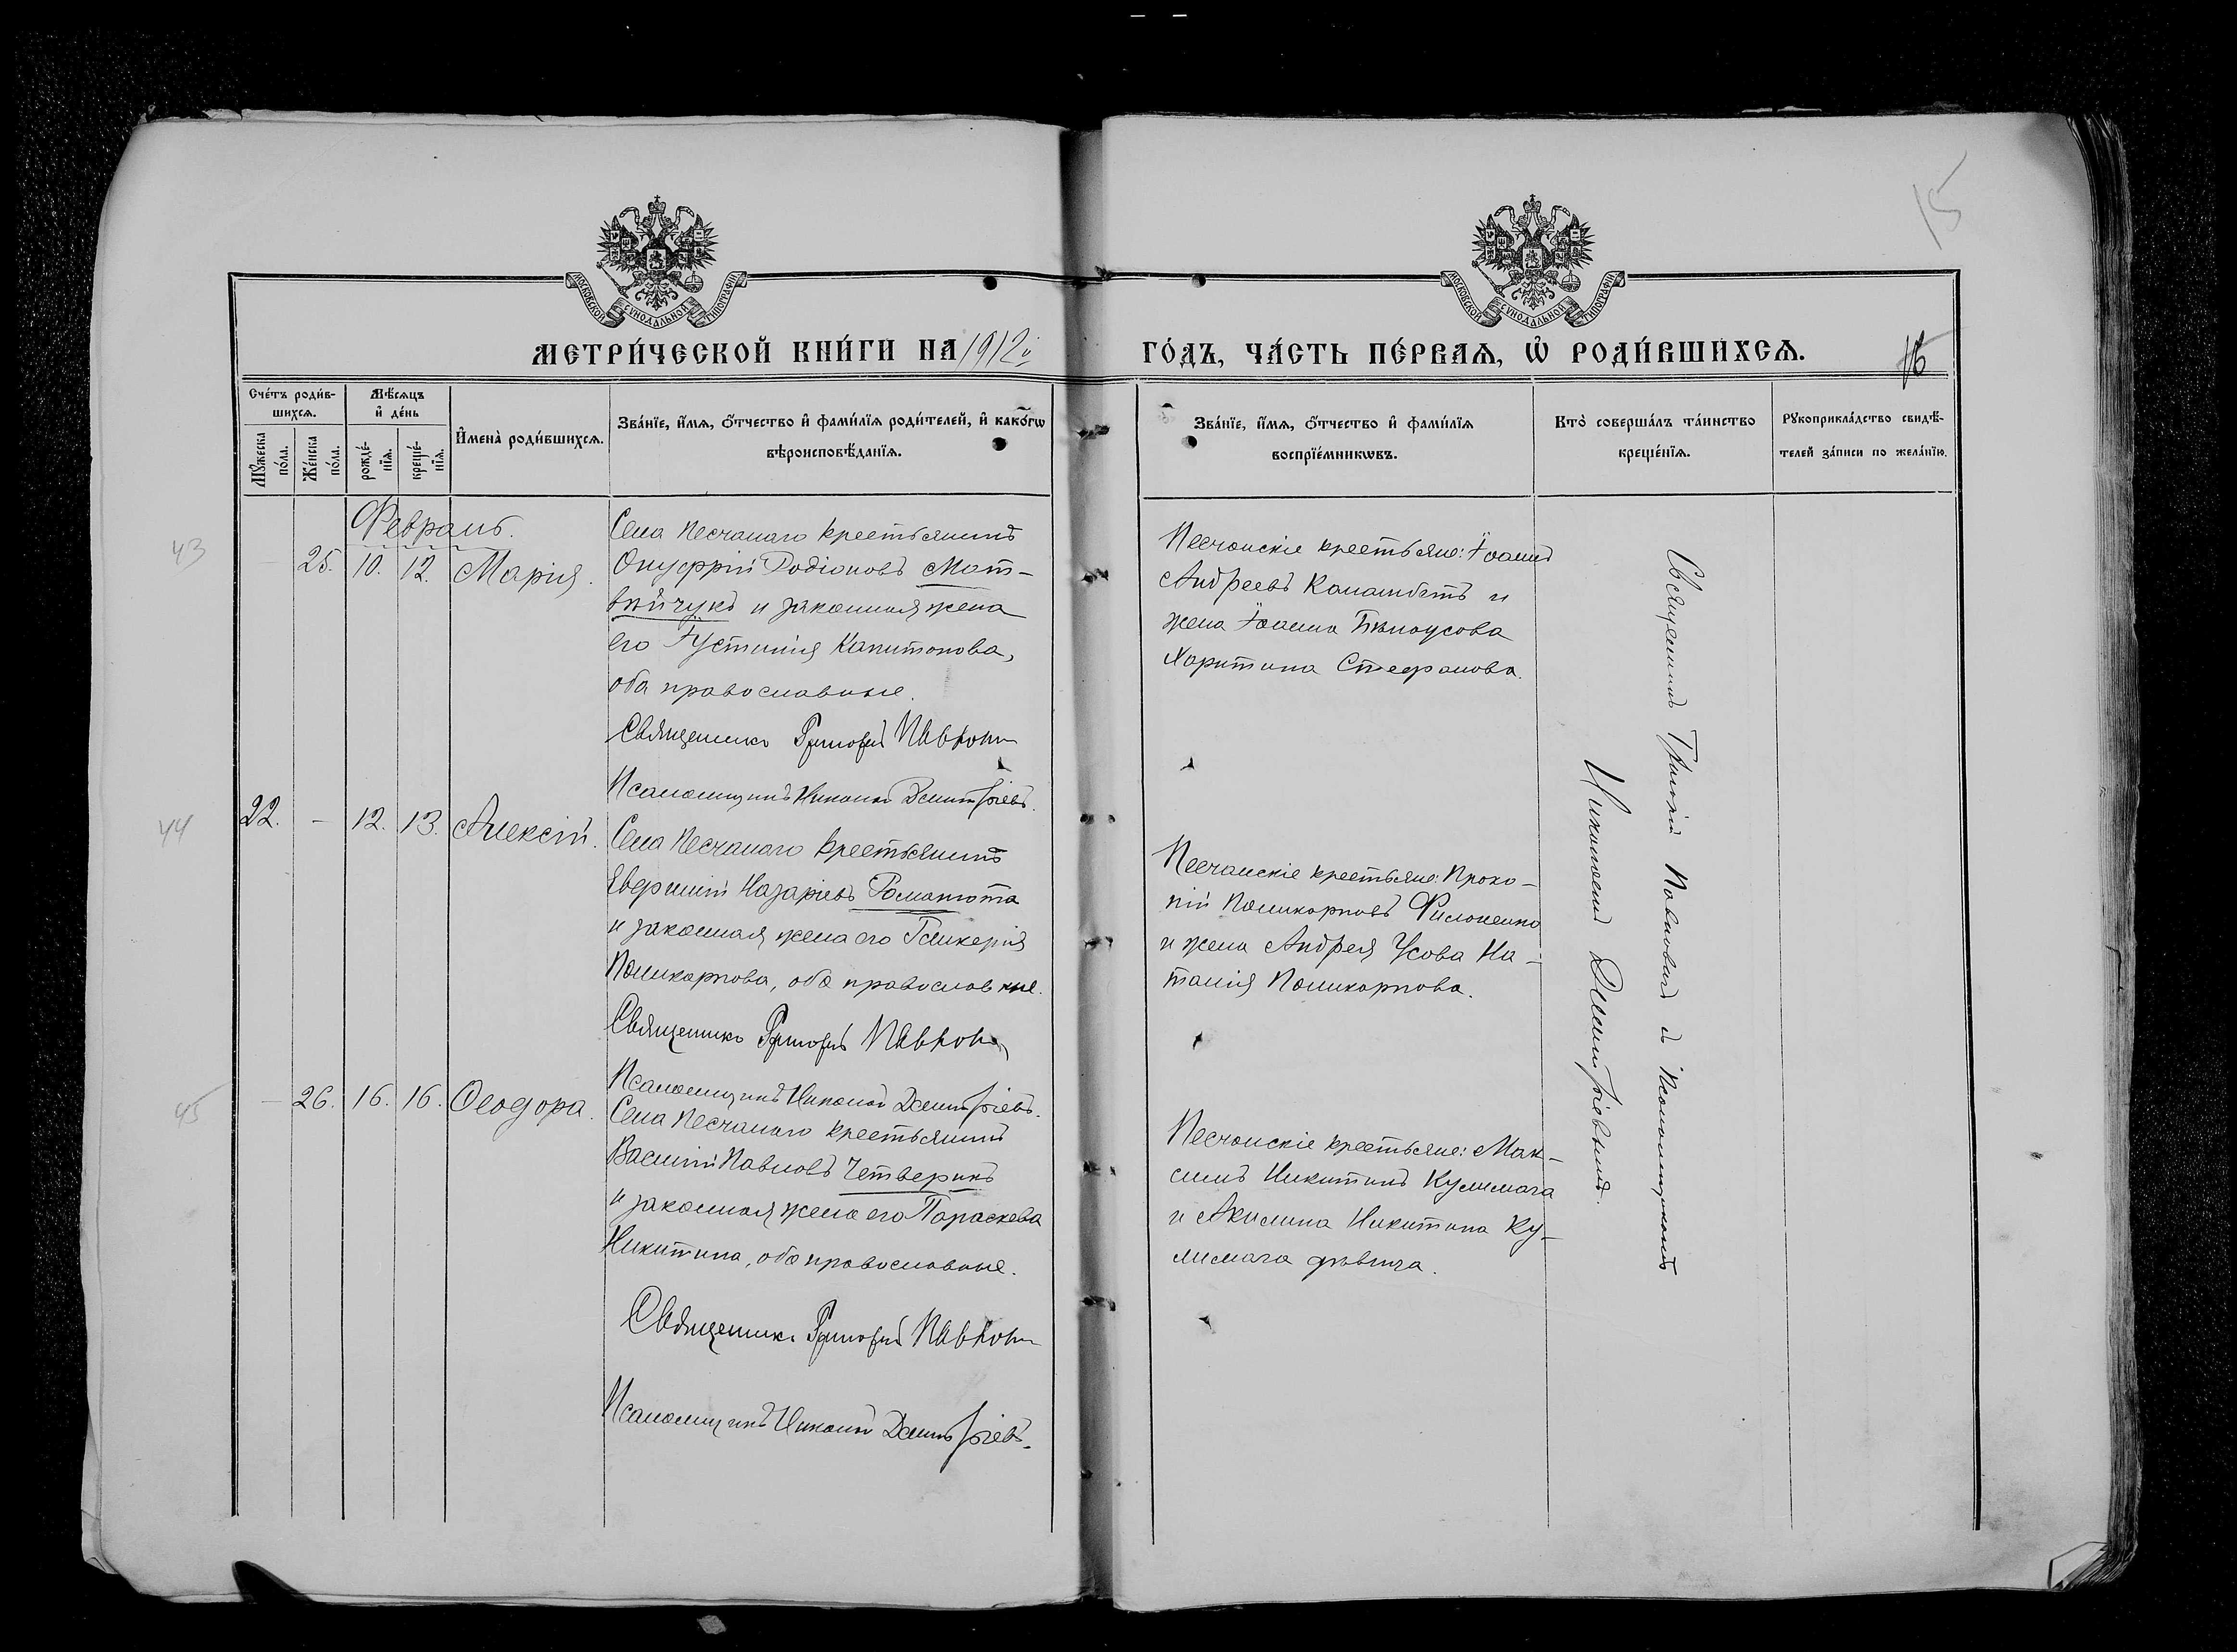 15
МОСКОВСКОЙ СУНОДАЛЬНОЙ ТИПОГРАФІИ
МОСКОВСКОЙ СУНОДАЛЬНОЙ ТИПОГРАФІИ
МЕТРИ́ЧЕСКОЙ КНИ́ГИ НА 1912
ГО́ДЪ, ЧА́СТЬ ПЕ́РВАѦ, Ѡ҆ РОДИ́ВШИХСѦ.
Сче́тъ роди́в-
шихсѧ.
Мꙋ́жеска
по́ла.
Же́нска
по́ла.
Мѣ́сѧцъ
и҆ де́нь
рожде́-
нїѧ.
креще́-
нїѧ.
И҆мена̀ роди́вшихсѧ.
Зва́нїе, и҆́мѧ, ѻ҆́тчество и҆ фами́лїѧ роди́телей, и҆ како́гѡ
вѣроисповѣ́данїѧ.
Зва́нїе, и҆́мѧ, ѻ҆́тчество и҆ фами́лїѧ
воспрїе́мникѡвъ.
Кто̀ соверша́лъ та́инство
креще́нїѧ.
Рꙋкоприкла́дство свидѣ́-
телей за́писи по жела́нїю.
Февраль.
43
25. 10. 12. Марія.
Села Песчанаго крестьянинъ
Онуфрій Родіоновъ Мат-
вѣйчукъ и законная жена
его Іустинія Капитонова,
оба православные.
Священникъ Григорій Павлов
Псаломщикъ Николай Димитріевъ.
Песчанскіе крестьяне: Іоаннъ
Андреевъ Каламбетъ и
жена Іоанна Бѣлоусова
Харитина Стефанова.
44
22. – 12. 13. Алексій.
Села Песчанаго крестьянинъ
Евфимій Назаріевъ Романюта
и законная жена его Гликерія
Поликарпова, оба православные.
Священникъ Григорій Павлов
Псаломщикъ Николай Димитріевъ.
Песчанскіе крестьяне: Проко-
пій Поликарповъ Филоненко
и жена Андрея Усова На-
талія Поликарпова.
45
– 26. 16. 16. Ѳеодора.
Села Песчанаго крестьянинъ
Василій Павловъ Четверикъ
и законная жена его Параскева
Никитина, оба православные.
Священникъ Григорій Павлов
Псаломщикъ Николай Димитріевъ.
Песчанскіе крестьяне: Мак-
симъ Никитинъ Кулимага
и Акилина Никитина Ку-
лимага дѣвица.
Священникъ Григорій Павловъ съ Псаломщикомъ
Николаемъ Димитріевымъ.